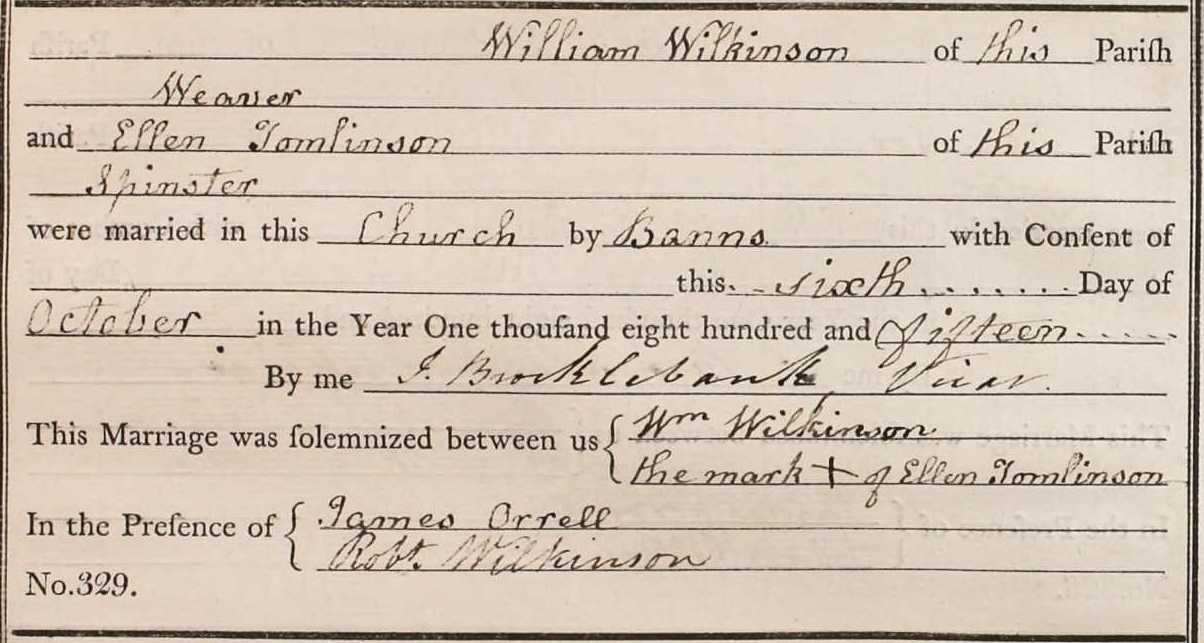 William Wilkinson of this Pariſh
Weaver
and Ellen Tomlinson of this Pariſh
Spinster
were married in this Church by Banns. with Conſent of
this. - sixth ........ Day of
October in the Year One thouſand eight hundred and fifteen.....
By me J. Brocklebank Vicar.
This Marriage was ſolemnized between us { Wm Wilkinson
the mark + of Ellen Tomlinson
In the Preſence of { James Orrell
Robt. Wilkinson
No.329.